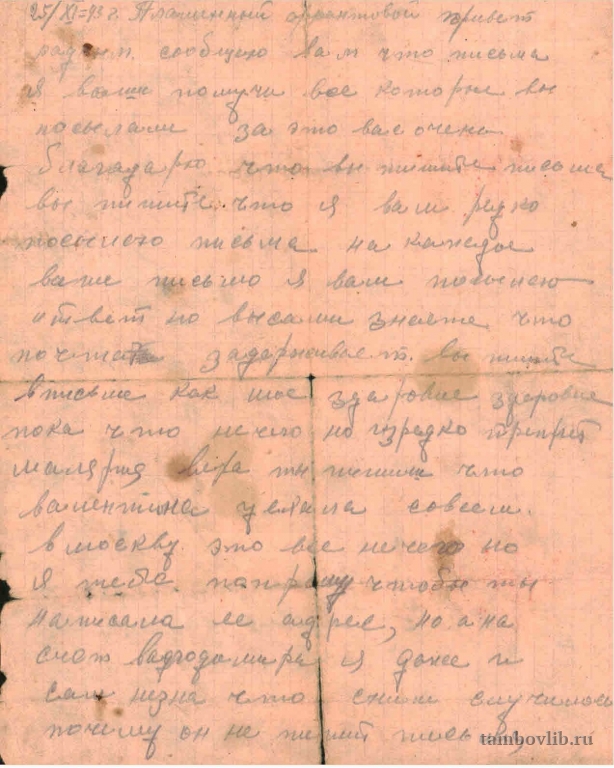 25/XI-43 г. Пламенный фронтовой привет
радым. сообщаю вам что письма
я ваши получи все которые вы
посылали за это вас очень
благадарю что вы пишите письма
вы пишите. что я вам редко
посылаю письма на каждое
ваше письмо я вам посылаю
ответ но вы сами знаете что
почта задерживает. вы пишите
в письме как мое здаровие здоровие
пока что нечего но изредко трепит
малярия вера ты пишиш что
валентина уехала совсем.
в москву. это все нечего но
я тебе папрашу чтобы ты
написала ее адрес, но а на
счот владодимира я даже и
сам незна что сним случилось
почему он не пишит письма
tambovlib.ru